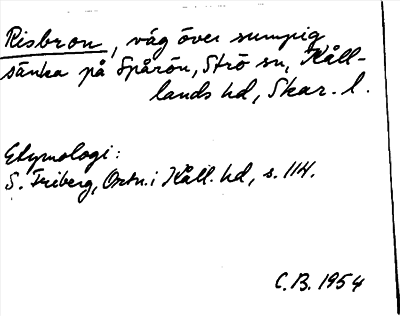 Risbron, väg över sumpig
sänka på Spårön, Strö sn, Kåll-
lands hd, Skar. l.
Etymologi:
S. Friberg, Ortn. i Kåll. hd, s. 114.
C.B. 1954